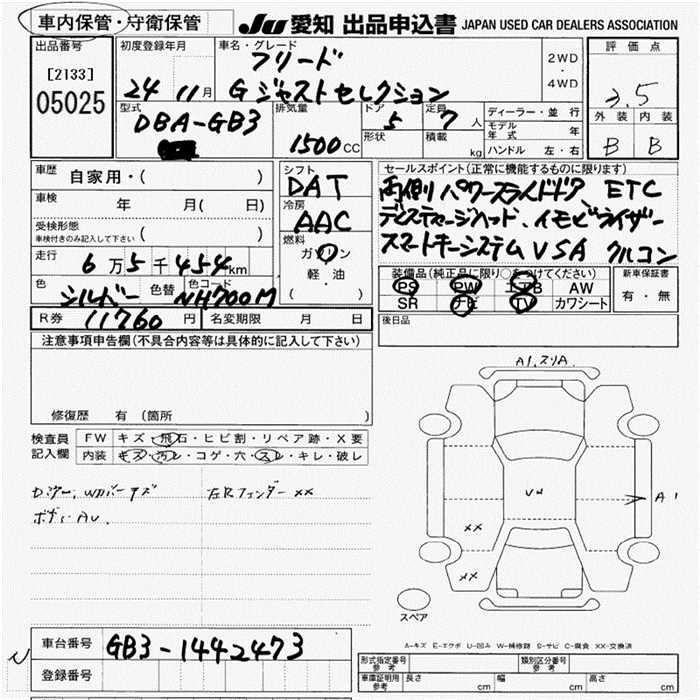 車内保管・守衛保管
JU 愛知 出品申込書 JAPAN USED CAR DEALERS ASSOCIATION
出品番号
[2133]
05025
初度登録年月
24 11月
車名・グレード
フリード
Gジャストセレクション
2WD
・
4WD
評価点
3.5
外装 内装
B B
型式
DBA-GB3
排気量
1500cc
ドア
5
形状
定員
7人
積載
kg
ディーラー・並行
モデル年式 年
ハンドル 左・右
車歴
自家用・( )
車検
年 月( 日)
受検形態
車検付きのみ記入して下さい ( )
走行
6万5千454km
色
シルバー
色替
色コード
NH700M
シフト
DAT
冷房
AAC
燃料
ガソリン
軽・油
( )
セールスポイント(正常に機能するものに限ります)
両側パワースライドドア、ETC
ディスチャージヘッド、イモビライザー
スマートキーシステム VSA クルコン
装備品(純正品に限り○をつけてください)
PS PW エアB AW
SR ナビ TV カワシート
新車保証書
有・無
R券 11760円 名変期限 月 日
後日品
注意事項申告欄(不具合内容等は具体的に記入して下さい)
修復歴 有(箇所
検査員記入欄
FW キズ・飛石・ヒビ割・リペア跡・X要
内装 キズ・汚レ・コゲ・穴・スレ・キレ・破レ
左Rフェンダー XX
ボディAU
A1.スリA.
VW
A1
XX
XX
スペア
A-キズ E-エクボ U-凹み W-補修跡 S-サビ C-腐食 XX-交換済
車台番号 GB3-1442473
登録番号
型式指定番号 参考
類別区分番号 参考
車庫証明用 参考 長さ cm 幅 cm 高さ cm